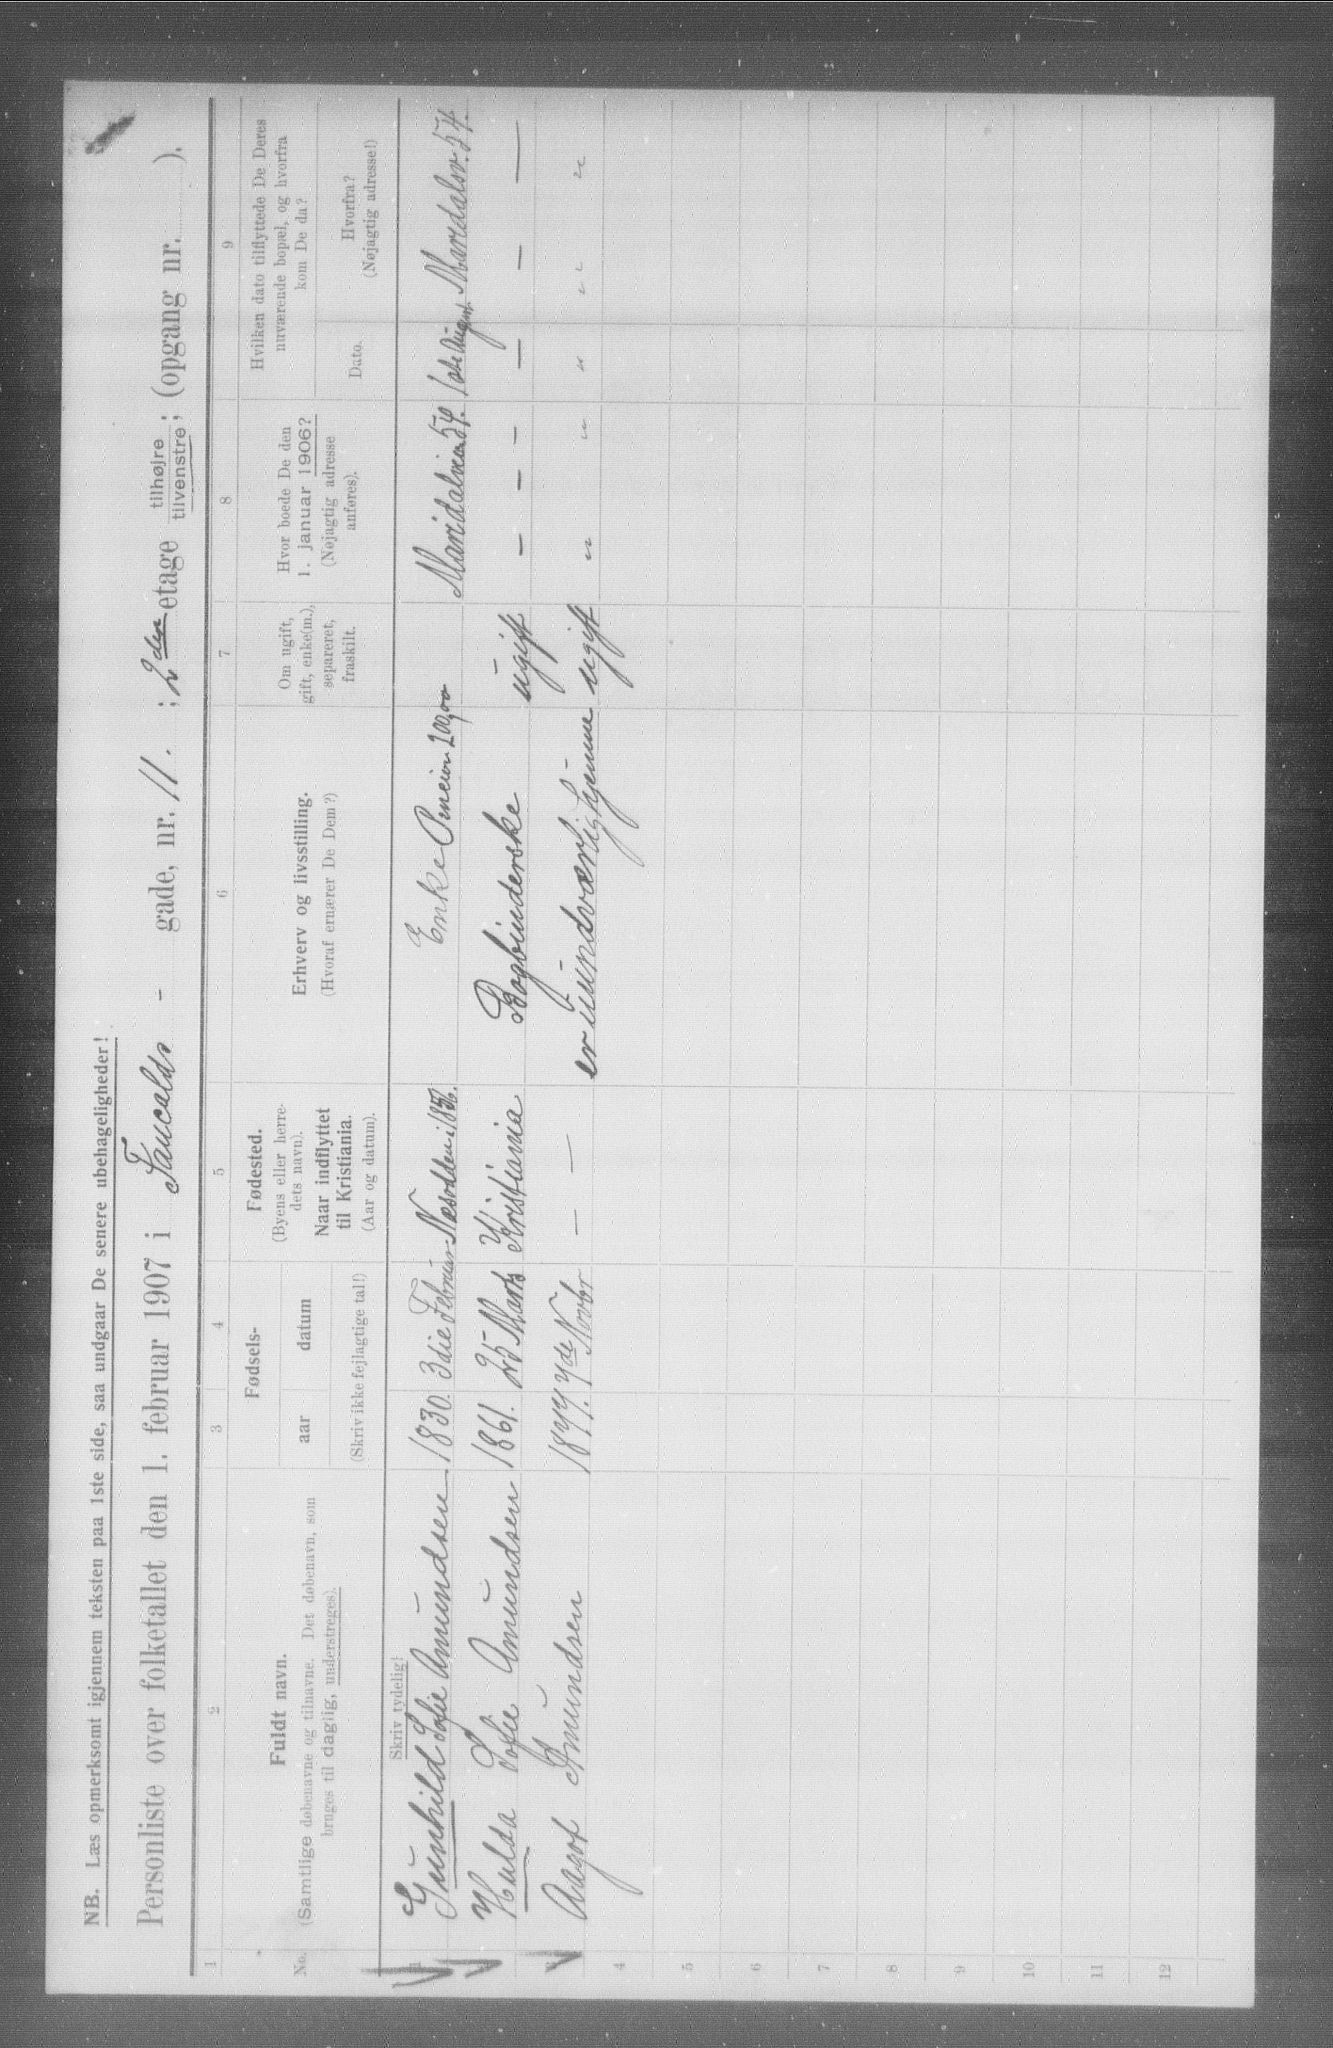 NB. Læs opmerksomt igjennem teksten paa 1ste side, saa undgaar De senere ubehageligheder!
Personliste over folketallet den 1. februar 1907 i Faucalds - gade, nr. 11. ; 2den etage tilhøjre tilvenstre; (opgang nr. ).
1 2 3 4 5 6 7 8 9
No.
Fuldt navn.
(Samtlige døbenavne og tilnavne. Det døbenavn, som
bruges til daglig, understreges).
Fødsels-
aar datum
(Skriv ikke fejlagtige tal!)
Fødested.
(Byens eller herre-
dets navn).
Naar indflyttet
til Kristiania.
(Aar og datum).
Erhverv og livsstilling.
(Hvoraf ernærer De Dem?)
Om ugift,
gift, enke(m.),
separeret,
fraskilt.
Hvor boede De den
1. januar 1906?
(Nøjagtig adresse
anføres).
Hvilken dato tilflyttede De Deres
nuværende bopæl, og hvorfra
kom De da?
Dato.
Hvorfra?
(Nøjagtig adresse!)
Skriv tydelig!
1 Gunhild Sofie Amundsen 1830. 3die Februar Næsodden i 1856. Enke Pension 200,00 Maridalsveien 54. 1ste August Maridalsv. 54.
Hulda Sofie Amundsen 1861. 25 Marts Kristiania Bogbinderske ugift - - - - - —
Aagot Amundsen 1877. 7de Novbr — — er uundværlig hjemme ugift " " " " "
4
5
6
7
8
9
10
11
12